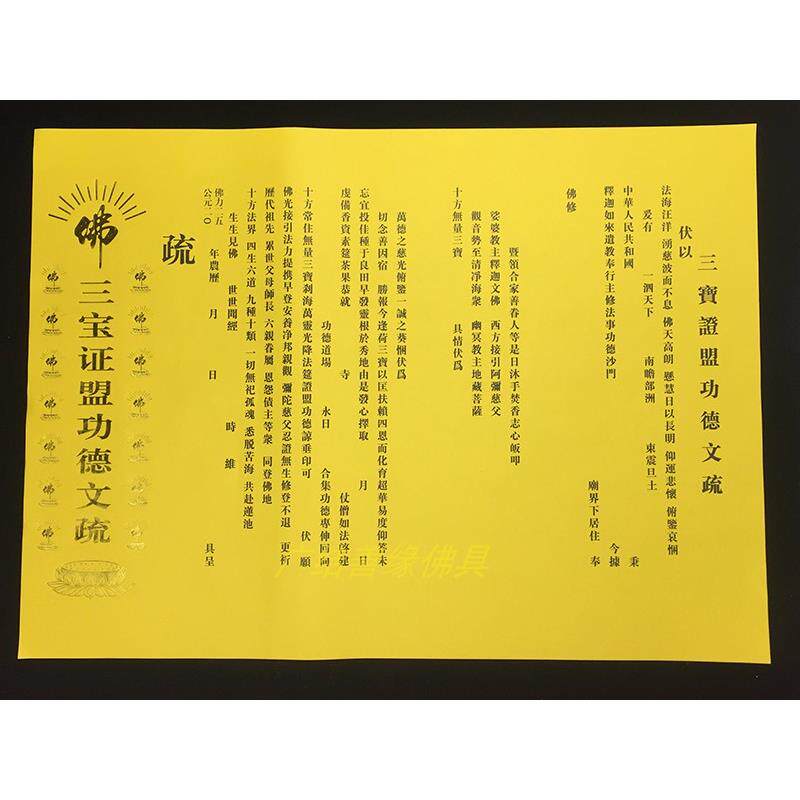 三寶證盟功德文疏
伏以
法海汪洋 湧慈波而不息 佛天高朗 懸慧日以長明 仰運悲懷 俯鑒哀悃
爰有 一泗天下 南瞻部洲 東震旦土
中華人民共和國 秉
釋迦如來遺教奉行主修法事功德沙門 今據
廟界下居住 奉
佛修
暨領合家善眷人等是日沐手焚香志心皈叩
娑婆教主釋迦文佛 西方接引阿彌慈父
觀音勢至清淨海衆 幽冥教主地藏菩薩
十方無量三寶 具情伏爲
萬德之慈光俯鑒一誠之葵悃伏爲
切念善因宿 勝報今逢荷三寶以匡扶賴四恩而化育超華易度仰答未
忘宜投佳種于良田早發靈根於秀地由是發心擇取 月 日
虔備香資素筵茶果恭就 寺 仗僧如法啓建
功德道場 永日 合集功德專伸回向
十方常住無量三寶刹海萬靈光降法筵證盟功德諒垂印可 伏願
佛光接引法力提携早登安養净邦親觀 彌陀慈父忍證無生修登不退 更祈
歷代祖先 累世父母師長 六親眷屬 恩怨債主等衆 同登佛地
十方法界 四生六道 九種十類 一切無祀孤魂 悉脱苦海 共赴蓮池
生生見佛 世世聞經 時維
佛力二五
公元二〇 年農歷 月 日 具呈
疏
佛
三宝证盟功德文疏
善缘佛具